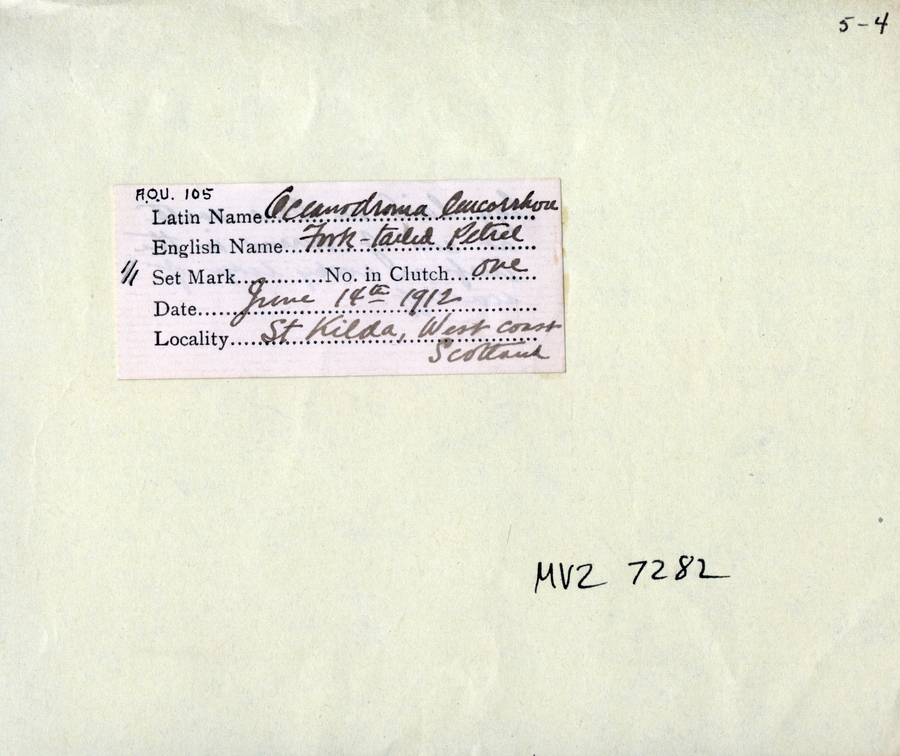 5-4
A.O.U. 105
Latin Name...Oceanodroma leucorrhoa
English Name...Fork-tailed Petrel
1/1 Set Mark............No. in Clutch...one
Date.....June 14th 1912
Locality....St Kilda, West coast
Scotland
MVZ 7282